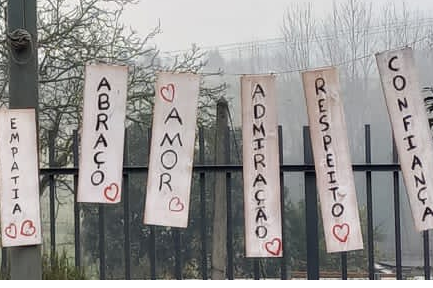 EMPATIA
ABRAÇO
AMOR
ADMIRAÇÃO
RESPEITO
CONFIANÇA